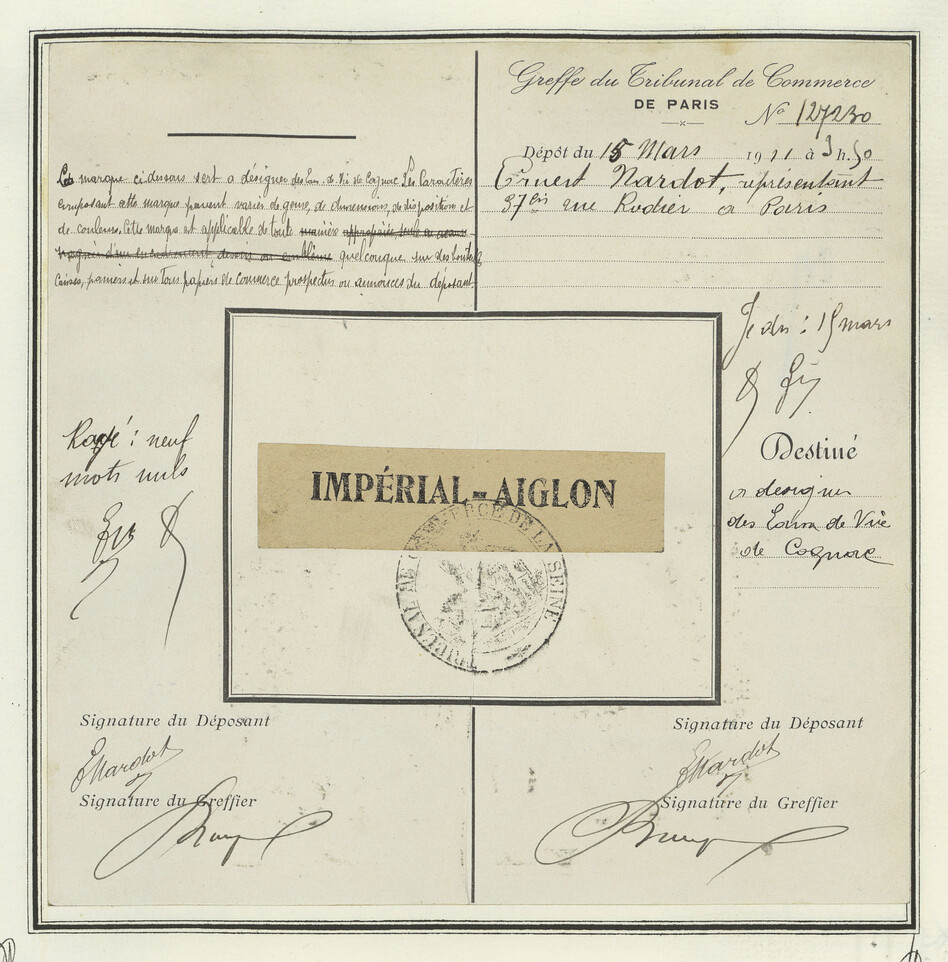 Greffe du Tribunal de Commerce
DE PARIS
No 127230
Dépôt du 15 Mars 1911 à 3 h. 50
Ernest Nardot, représentant
37 bis rue Rodier à Paris
La marque ci dessus sert a désigner des Eaux-de-Vie de Cognac. Les Caractères
composant cette marque peuvent varier de genre, de dimensions, de disposition et
de couleurs. Cette marque est applicable de toute manière appropriée, seule ou
d'un encadrement, dessin ou emblème quelconque sur des bouteilles
Caisses, paniers et sur tous papiers de Commerce prospectus ou annonces du déposant.
Je dis : 15 mars
Rayé : neuf
mots nuls
Destiné
a designer
des Eaux de Vie
de Cognac
IMPÉRIAL-AIGLON
TRIBUNAL DE COMMERCE DE LA SEINE
Signature du Déposant
ENardot
Signature du Greffier
Signature du Déposant
ENardot
Signature du Greffier